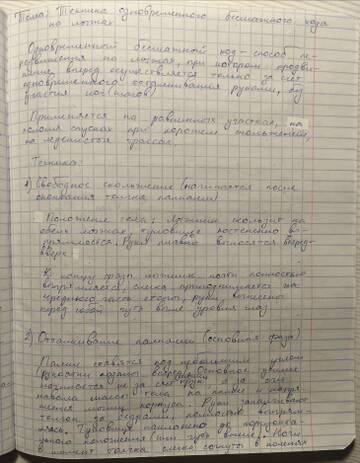 Тема: Техника одновременного бесшажного хода
на лыжах.
Одновременный бесшажный ход - способ пе-
редвижения на лыжах, при котором продви-
жение вперед осуществляется только за счёт
одновременного отталкивания руками, без
участия ног (шагов)
Применяется на равнинных участках, на
пологих спусках при хорошем скольжении,
на леденистых трассах.
Техника:
1) Свободное скольжение (начинается после
окончания толчка палками)
Положение тела: Лыжник скользит на
обеих лыжах, туловище постепенно вы-
прямляется. Руки плавно выносятся вперед-
вверх
К концу фазы лыжник почти полностью
выпрямляется, слегка приподнимается на
руки, вынесены
перед собой чуть выше уровня глаз
2) Отталкивание палками (основная фаза)
Палки ставятся под углом
Основное усилие
начинается не за счёт рук, а за счёт
навала массы тела на палки и
мышц корпуса. Руки заканчивают
толчок за бедрами, полностью выпрям-
ляясь. Туловище наклонено до горизонта-
льного положения (или чуть выше). Ноги
в момент толчка слегка согнуты в коленях